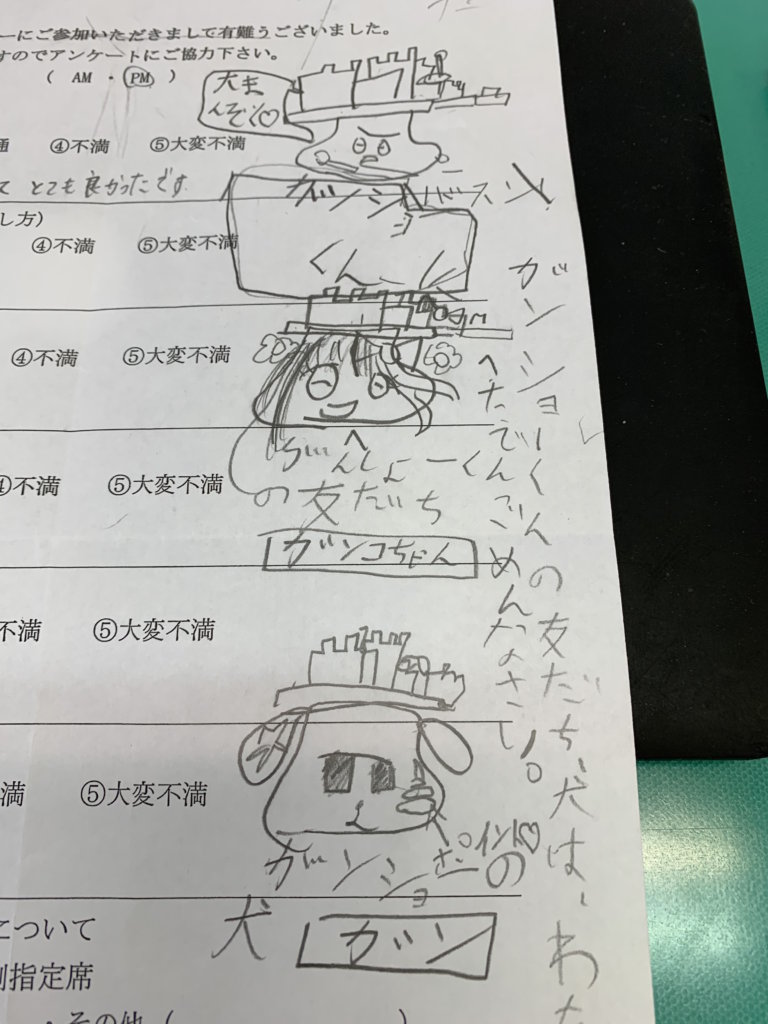 ーにご参加いただきまして有難うございました。
すのでアンケートにご協力下さい。
( AM ・ PM )
大まんぞく♡
④不満 ⑤大変不満
て とても良かったです
し方)
④不満 ⑤大変不満
ガンショ
くん
④不満 ⑤大変不満
がんしょーくん
の友だち
④不満 ⑤大変不満
ガンコちゃん
不満 ⑤大変不満
満 ⑤大変不満
ポイント♡
ガンショーの
犬
ガン
について
別指定席
・その他 (   )
ガンショーくんの友だち、犬は、わた
へたでごめんなさい。